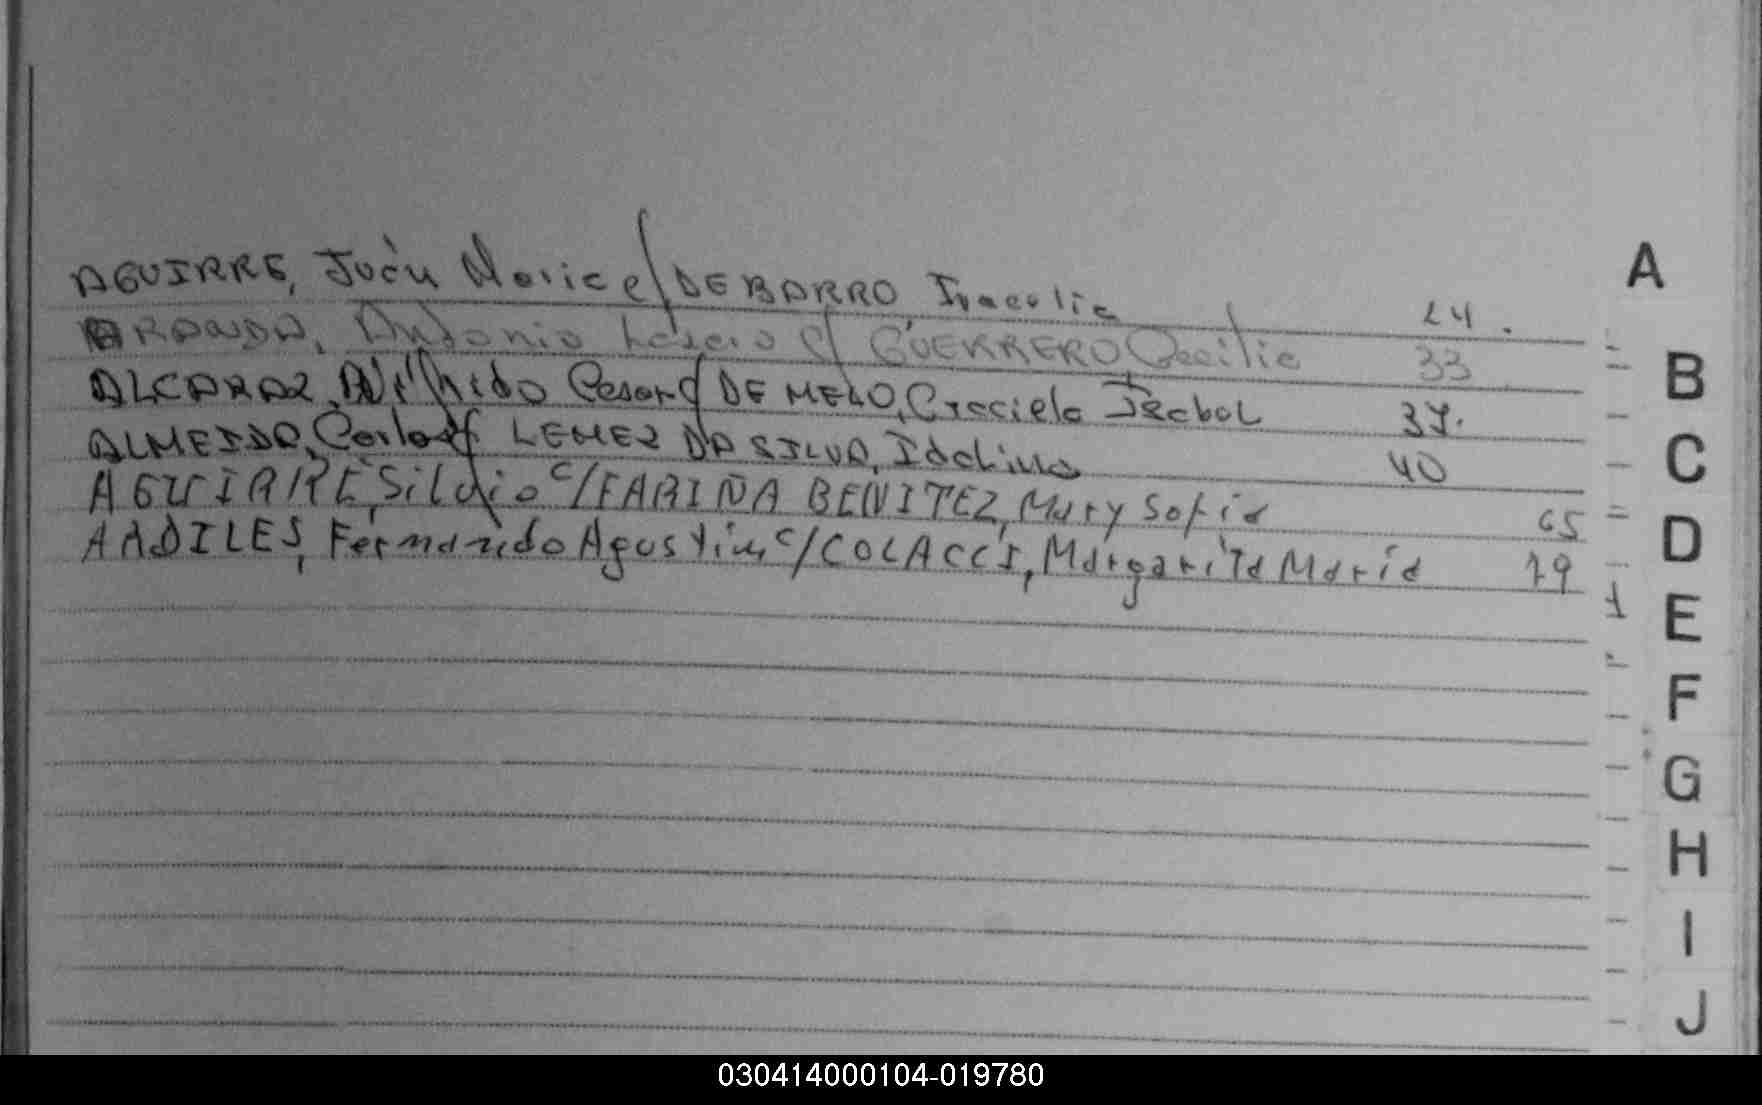 AGUIRRE, Juan Maria c/ DE BARRO, Iracelia 24.
ARANDA, Antonio c/ GUERRERO, Cecilia 33
ALCARAZ, Wilfrido Cesar c/ DE MELO, Graciela Isabel 37.
ALMEIDA, Carlos c/ LEMEZ DA SILVA, Idalina 40
AGUIRRE, Silvio c/ FARIÑA BENITEZ, Mary Sofia 65
ARDILES, Fernando Agustin c/ COLACCI, Margarita María 79
A
B
C
D
E
F
G
H
I
J
030414000104-019780